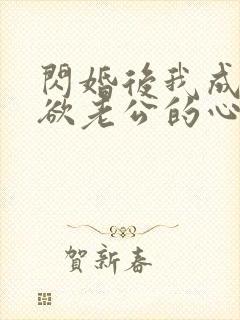 閃婚後我成
欲老公的心
賀新春